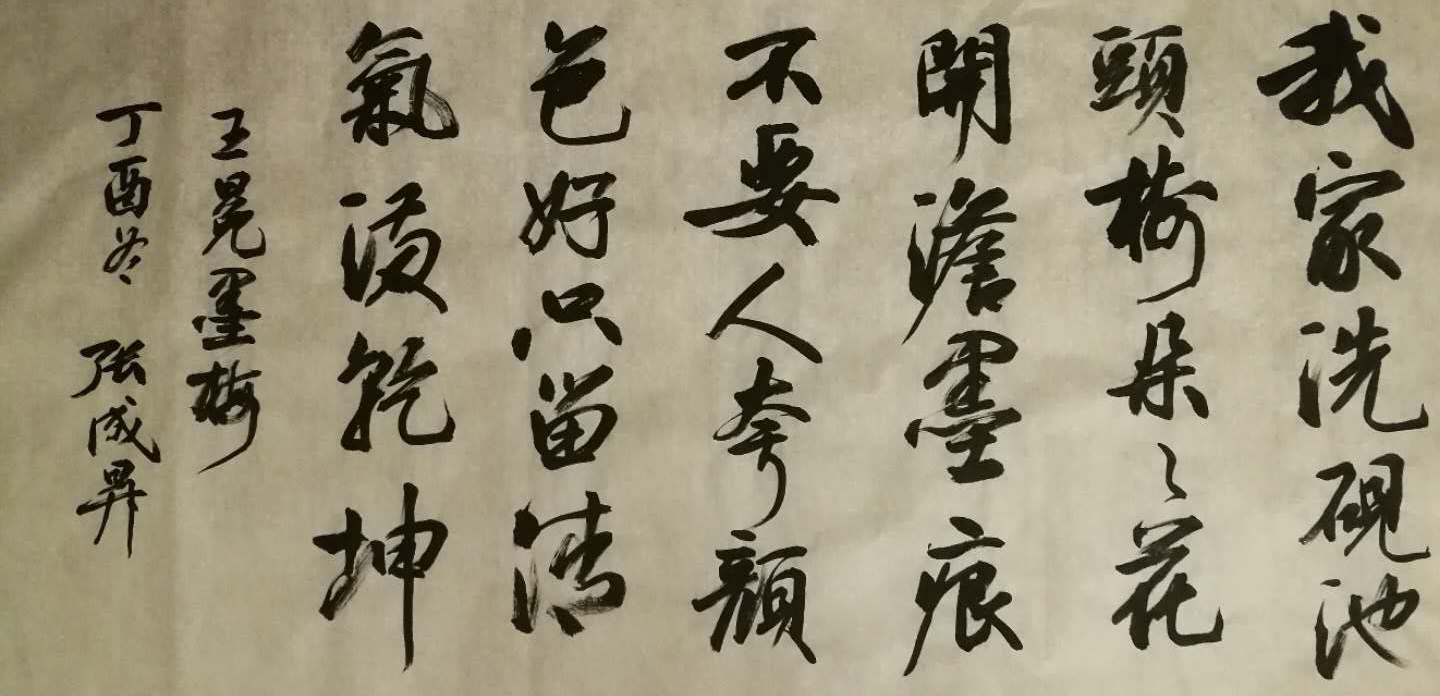 我家洗硯池
頭梅朵〻花
開澹墨痕
不要人夸顏
色好只留清
氣滿乾坤
王冕墨梅
丁酉冬 張成昇